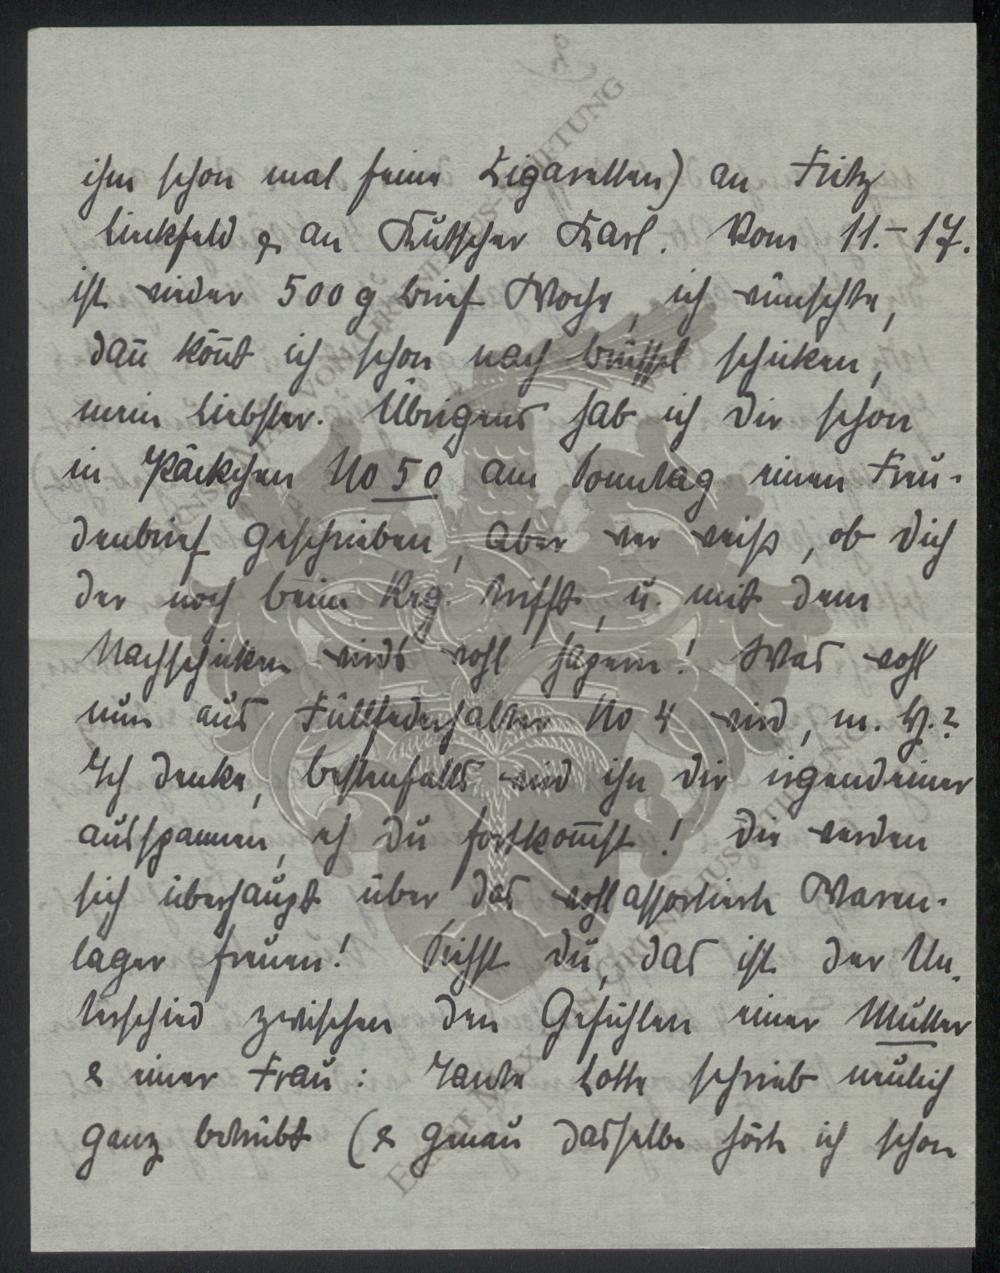 ihm schon mal feine Zigaretten) an Fritz
Linkfeld & an Kutscher Karl. Vom 11.-17.
ist wieder 500 g Brief Woche, ich wünschte,
dañ köñt ich schon nach Brüssel schicken,
mein Liebster. Übrigens hab ich Dir schon
in Päckchen No 50 am Sonntag einen Freu-
denbrief geschrieben, aber wer weiss, ob Dich
der noch beim Reg. trifft, u. mit dem
Nachschicken wirds wohl hapern! Was wohl
nun aus Füllfederhalter No 4 wird, m. H.?
Ich denke, bestenfalls wird ihn Dir irgendeiner
ausspannen, eh Du fortkom̄st! Die werden
sich überhaupt über das wohlassortierte Waren-
lager freuen! Siehst Du, das ist der Un-
terschied zwischen den Gefühlen einer Mutter
& einer Frau: Tante Lotte schrieb neulich
ganz betrübt (& genau dasselbe hörte ich schon